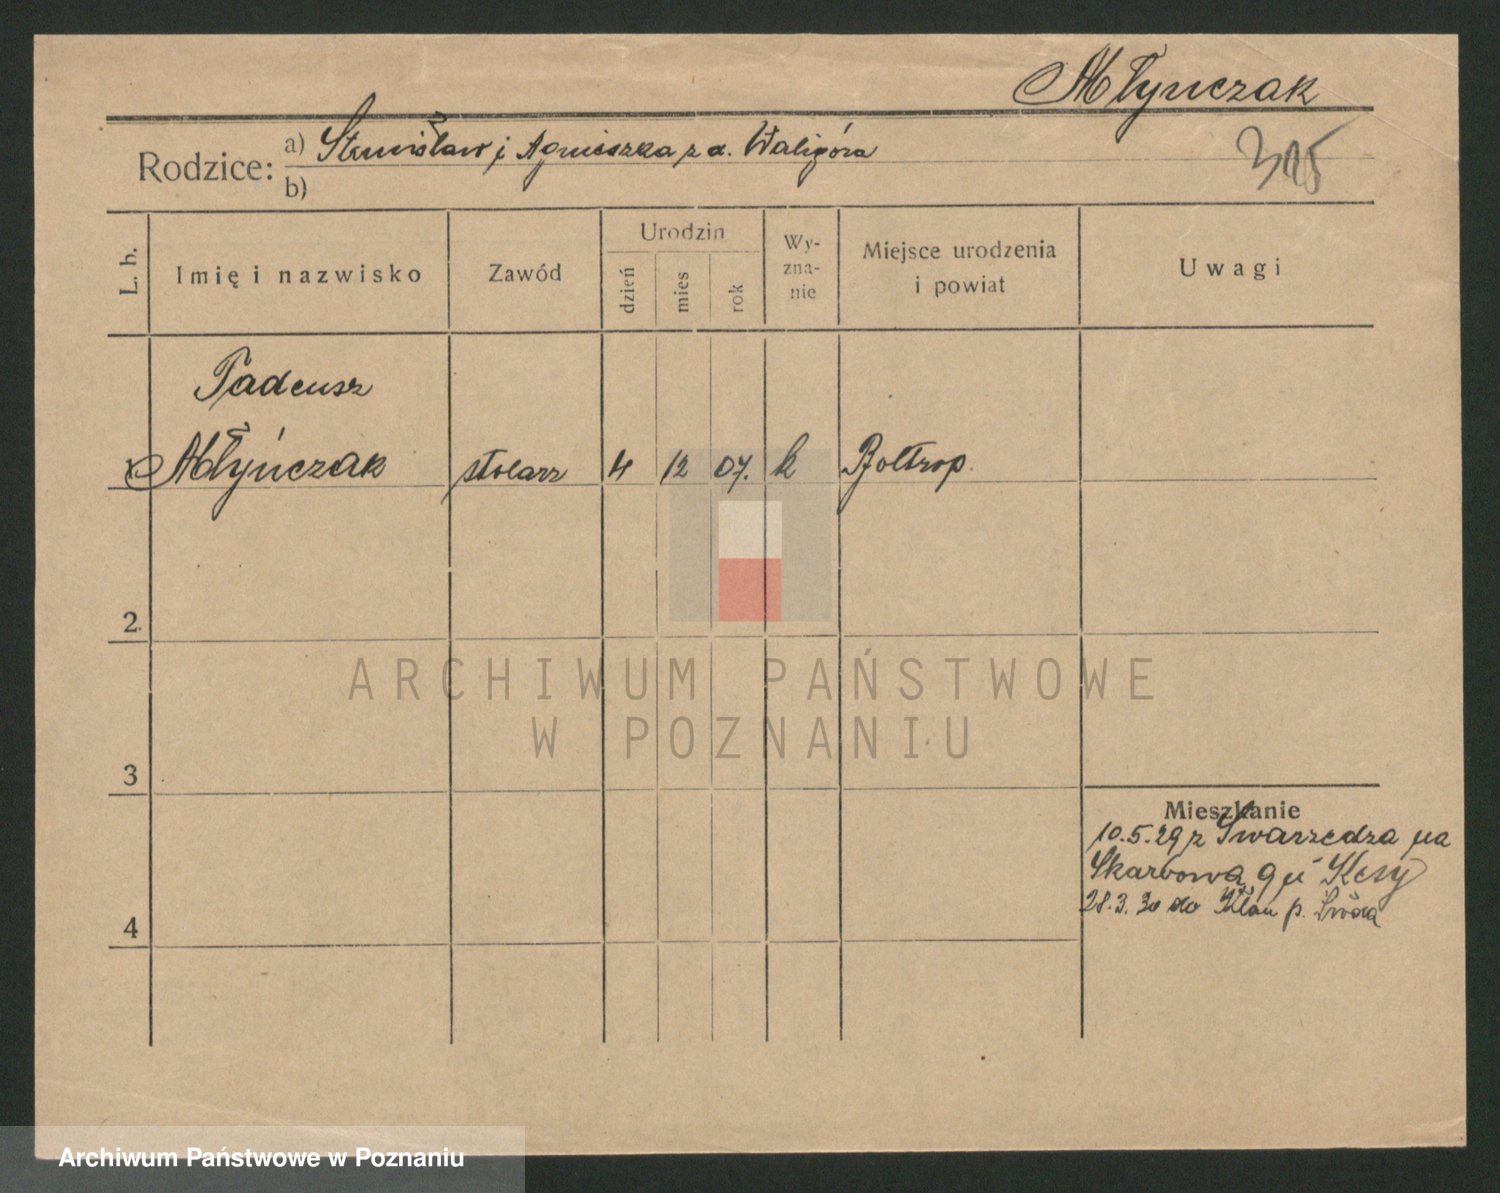 Młynczak
Rodzice: a) Stanisław i Agnieszka z d. Waligóra
b)
315
L. b.
Imię i nazwisko
Zawód
Urodzin
dzień
mies
rok
Wy-
zna-
nie
Miejsce urodzenia
i powiat
Uwagi
Tadeusz
Młyńczak stolarz 4 12 07. k Bottrop.
2.
ARCHIWUM PAŃSTWOWE
W POZNANIU
3
Mieszkanie
10.5.29 z Swarzędza na
Skarbową 9 u Kesy
28.3.30 do p. Środa
4
Archiwum Państwowe w Poznaniu